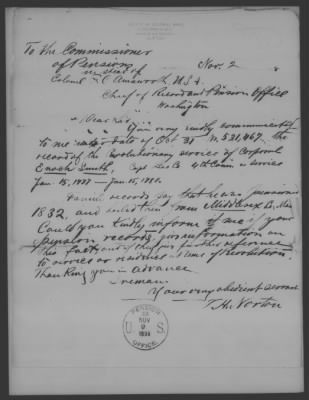 To the Commissioner
of Pensions
Nov. 2
Colonel C Ainsworth U.S.A.
Chief of Record and Pension Office
Washington
Dear Sir
You very kindly communicated
to me under date of Oct 31 N. 531,467, the
record of the Revolutionary service of Corporal
Enoch Smith, Capt
Jan. 15, 1777 — Jan 15, 1780.
Family records say that he was pensioned
1832, and
Could you kindly inform me if your
pension records give information on
this fact, and if they give further reference
to service or residence at time of Revolution.
Thanking you in advance
I remain
Your very obedient servant
T. H. Norton
PENSION
NOV
2
1898
U S
OFFICE